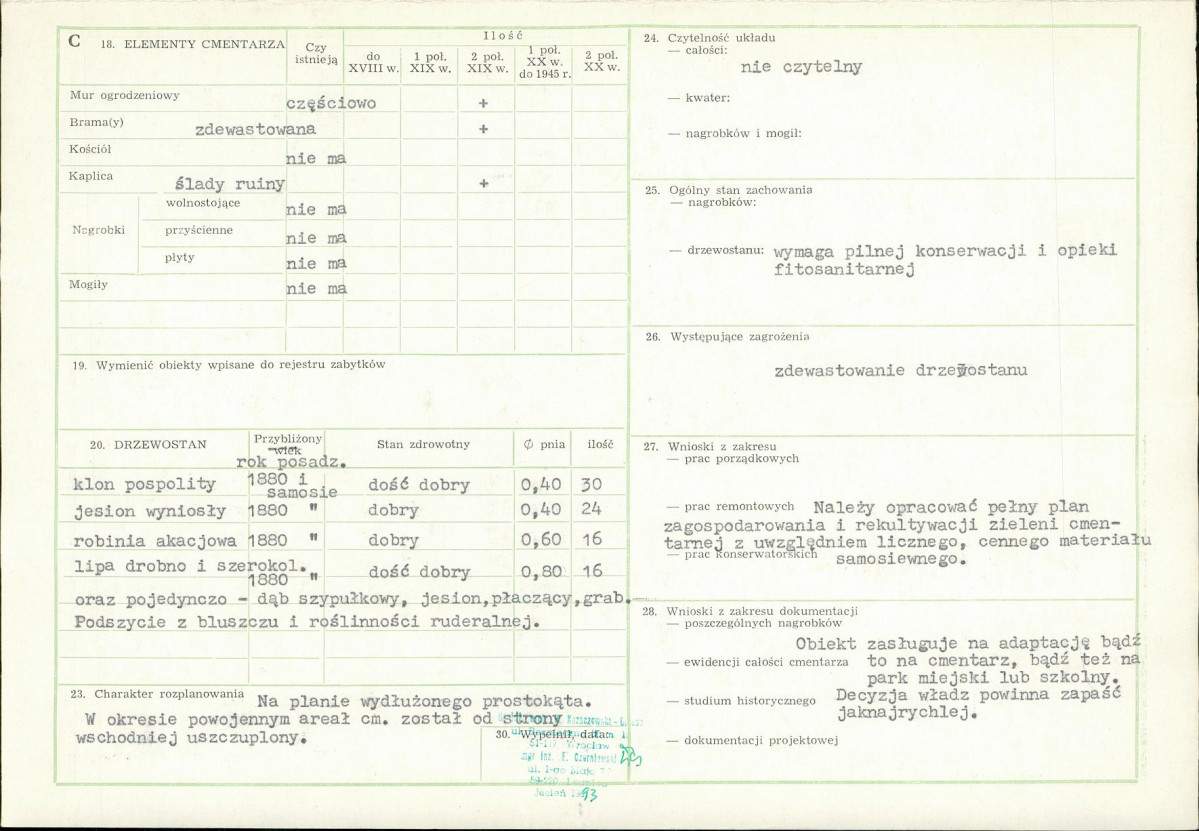 C 18. ELEMENTY CMENTARZA
Czy istnieją
Ilość
do XVIII w.
1 poł. XIX w.
2 poł. XIX w.
1 poł. XX w. do 1945 r.
2 poł. XX w.
Mur ogrodzeniowy częściowo +
Brama(y) zdewastowana +
Kościół nie ma
Kaplica ślady ruiny +
Nagrobki
wolnostojące nie ma
przyścienne nie ma
płyty nie ma
Mogiły nie ma
19. Wymienić obiekty wpisane do rejestru zabytków
20. DRZEWOSTAN
Przybliżony wiek
rok posadz.
Stan zdrowotny
Ø pnia
ilość
klon pospolity 1880 i samosie dość dobry 0,40 30
jesion wyniosły 1880 " dobry 0,40 24
robinia akacjowa 1880 " dobry 0,60 16
lipa drobno i szerokol.
1880 " dość dobry 0,80 16
oraz pojedynczo - dąb szypułkowy, jesion,płaczący,grab.
Podszycie z bluszczu i roślinności ruderalnej.
23. Charakter rozplanowania Na planie wydłużonego prostokąta.
W okresie powojennym areał cm. został od strony
wschodniej uszczuplony.
30. Wypełnił, data:
51-117 Wrocław
mgr inż. E.
ul. 1-go Maja
93
24. Czytelność układu
— całości:
nie czytelny
— kwater:
— nagrobków i mogił:
25. Ogólny stan zachowania
— nagrobków:
— drzewostanu: wymaga pilnej konserwacji i opieki
fitosanitarnej
26. Występujące zagrożenia
zdewastowanie drzewostanu
27. Wnioski z zakresu
— prac porządkowych
— prac remontowych Należy opracować pełny plan
zagospodarowania i rekultywacji zieleni cmen-
tarnej z uwzględniem licznego, cennego materiału
— prac konserwatorskich samosiewnego.
28. Wnioski z zakresu dokumentacji
— poszczególnych nagrobków
Obiekt zasługuje na adaptację bądź
— ewidencji całości cmentarza to na cmentarz, bądź też na
park miejski lub szkolny.
— studium historycznego Decyzja władz powinna zapaść
jaknajrychlej.
— dokumentacji projektowej